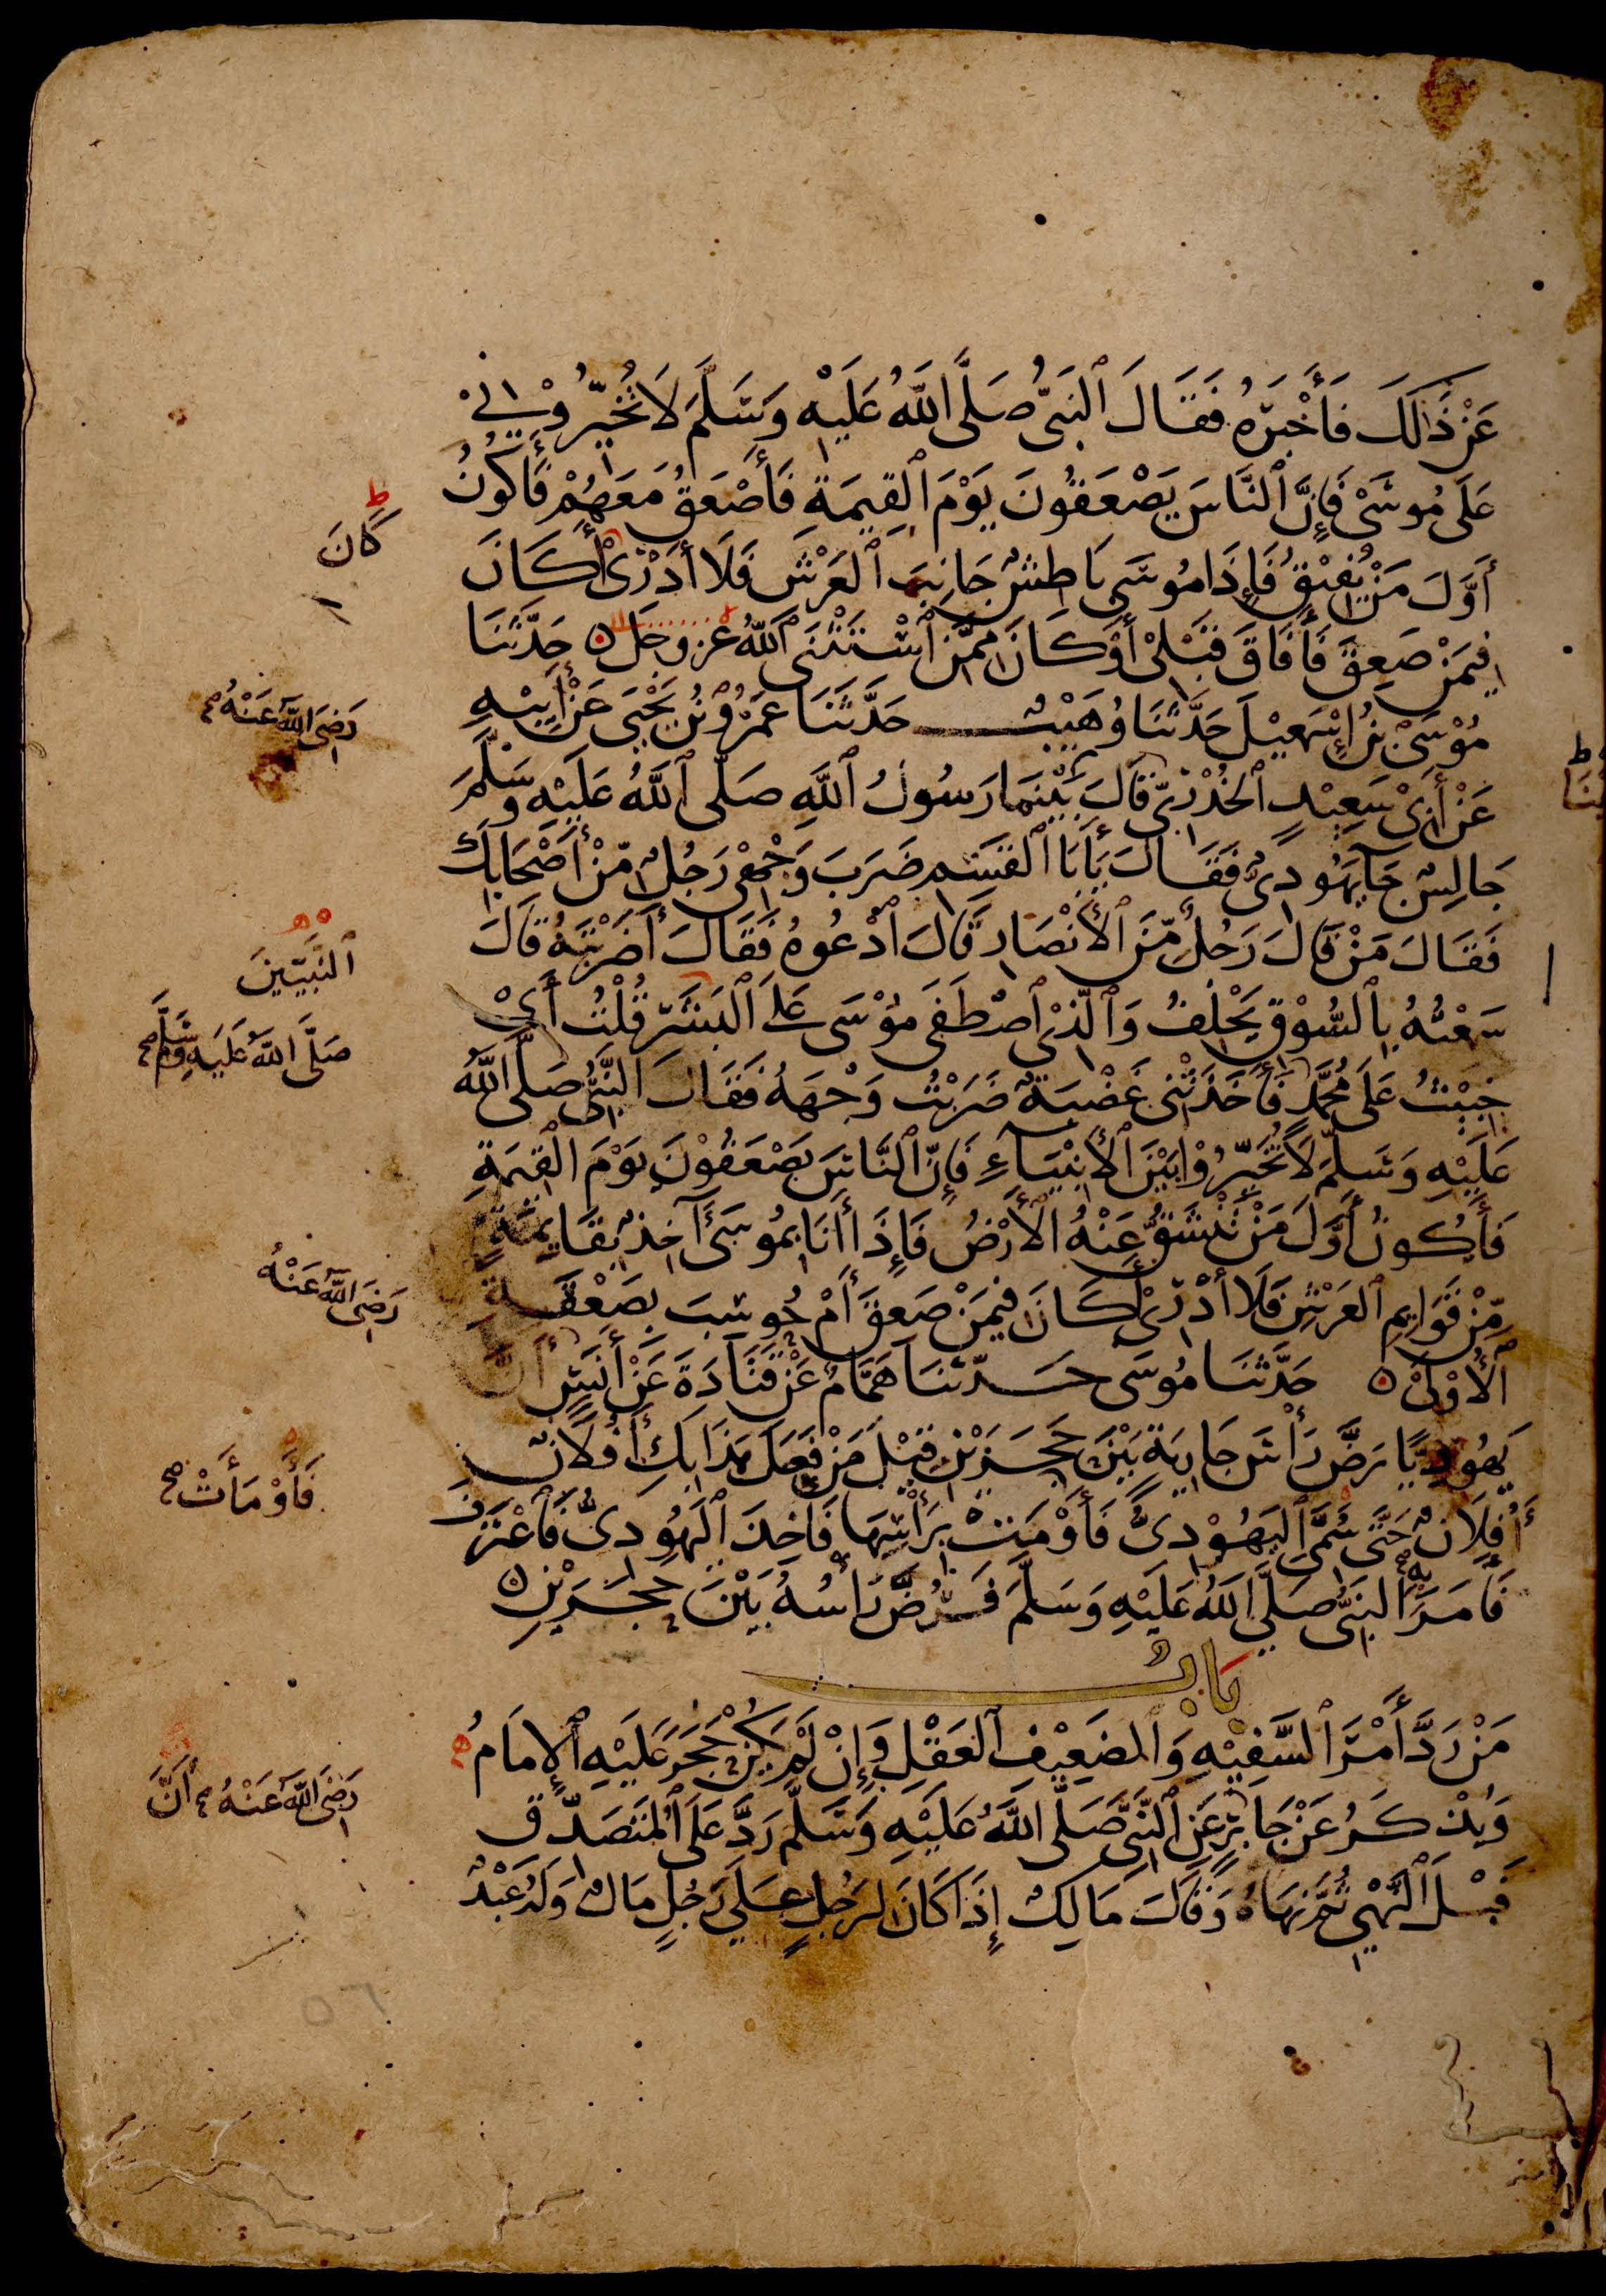 عَنْ ذَٰلِكَ فَأَخْبَرَهُ فَقَالَ ٱلنَّبِيُّ صَلَّى ٱللَّهُ عَلَيْهِ وَسَلَّمَ لَا تُخَيِّرُوْنِيْ
عَلَى مُوسَىْ فَإِنَّ ٱلنَّاسَ يَصْعَقُونَ يَوْمَ ٱلْقِيٰمَةِ فَأَصْعَقُ مَعَهُمْ فَأَكُونُ
كَانَ
أَوَّلَ مَنْ يُفِيْقُ فَإِذَا مُوسَى بَاطِشٌ جَانِبَ ٱلْعَرْشِ فَلَا أَدْرِىْ أَكَانَ
فِيمَنْ صَعِقَ فَأَفَاقَ قَبْلِىْ أَوْ كَانَ مِمَّنِ ٱسْتَثْنَى ٱللَّهُ عز وجل ۝ حَدَّثَنَا
مُوْسَىْ بْنُ إِسْمٰعِيْلَ حَدَّثَنَا وُهَيْبٌ حَدَّثَنَا عَمْرُو بْنُ يَحْيَى عَنْ أَبِيْهِ
رَضِيَ اللَّهُ عَنْهُ صح
عَنْ أَبِىْ سَعِيْدٍ ٱلْخُدْرِيِّ قَالَ بَيْنَمَا رَسُولُ ٱللَّهِ صَلَّى ٱللَّهُ عَلَيْهِ وَسَلَّمَ
جَالِسٌ جَآءَ يَهُودِىٌّ فَقَالَ يَٰأَبَا ٱلْقٰسِمِ ضَرَبَ وَجْهِى رَجُلٌ مِّنْ أَصْحَابِكَ
فَقَالَ مَنْ قَالَ رَجُلٌ مِّنَ ٱلْأَنْصَارِ قَالَ ٱدْعُوهُ فَقَالَ أَضَرَبْتَهُ قَالَ
ٱلنَّبِيِّينَ
سَمِعْتُهُ بِٱلسُّوْقِ يَحْلِفُ وَٱلَّذِىْ ٱصْطَفَى مُوْسَى عَلَى ٱلْبَشَرِ قُلْتُ أَىْ
صَلَّى اللَّهُ عَلَيْهِ وَسَلَّمَ صح
خَبِيْثُ عَلَى مُحَمَّدٍ فَأَخَذَتْنِى غَضْبَةٌ ضَرَبْتُ وَجْهَهُ فَقَالَ النَّبِيُّ صَلَّى اللَّهُ
عَلَيْهِ وَسَلَّمَ لَا تُخَيِّرُوْا بَيْنَ ٱلْأَنْبِيَآءِ فَإِنَّ ٱلنَّاسَ يَصْعَقُوْنَ يَوْمَ ٱلْقِيٰمَةِ
فَأَكُونُ أَوَّلَ مَنْ تَنْشَقُّ عَنْهُ ٱلْأَرْضُ فَإِذَا أَنَا بِمُوسَىٰ آخِذٌ بِقَائِمَةٍ
مِّنْ قَوَائِمِ ٱلْعَرْشِ فَلَا أَدْرِىْ أَكَانَ فِيمَنْ صَعِقَ أَمْ حُوسِبَ بِصَعْقَةِ
رَضِيَ اللَّهُ عَنْهُ
ٱلْأُوْلَىٰ ۝ حَدَّثَنَا مُوسَى حَدَّثَنَا هَمَّامٌ عَنْ قَتَادَةَ عَنْ أَنَسٍ أَنَّ
يَهُودِيًّا رَضَّ رَأْسَ جَارِيَةٍ بَيْنَ حَجَرَيْنِ قِيْلَ مَنْ فَعَلَ هَذَا بِكِ أَفُلَانٌ
فَأَوْمَأَتْ صح
أَفُلَانٌ حَتَّى سُمِّىَ ٱلْيَهُوْدِىُّ فَأَوْمَتْ بِرَأْسِهَا فَأُخِذَ ٱلْيَهُودِىُّ فَٱعْتَرَفَ
فَأَمَرَ بِهِ ٱلنَّبِيُّ صَلَّى اللَّهُ عَلَيْهِ وَسَلَّمَ فَرُضَّ رَأْسُهُ بَيْنَ حَجَرَيْنِ ۝
بَابُ
مَنْ رَدَّ أَمْرَ ٱلسَّفِيْهِ وَٱلضَعِيْفِ ٱلْعَقْلِ وَإِنْ لَّمْ يَكُنْ حَجَرَ عَلَيْهِ ٱلْإِمَامُ
وَيُذْكَرُ عَنْ جَابِرٍ عَنِ ٱلنَّبِيِّ صَلَّى اللَّهُ عَلَيْهِ وَسَلَّمَ رَدَّ عَلَى ٱلْمُتَصَدِّقِ
رَضِيَ اللَّهُ عَنْهُ صح أَنَّ
قَبْلَ ٱلنَّهْيِ ثُمَّ نَهَاهُ وَقَالَ مَالِكٌ إِذَا كَانَ لِرَجُلٍ عَلَى رَجُلٍ مَالٌ وَلَهُ عَبْدٌ
٥٦